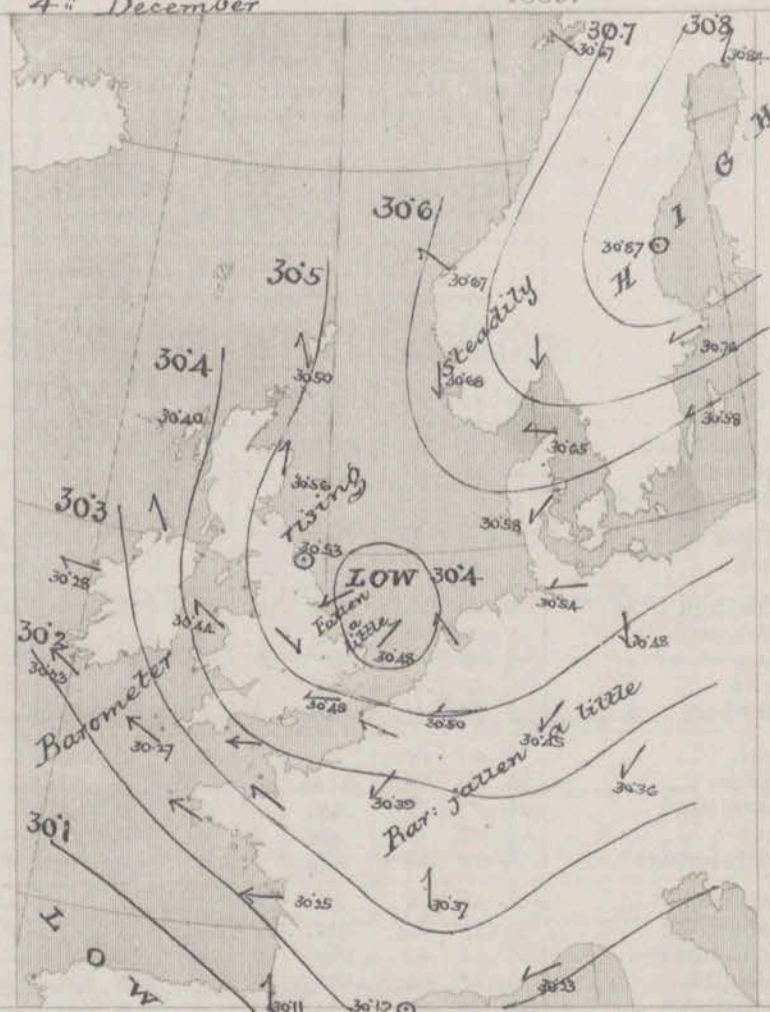 4th December
30.7
30.8
30.67
30.84
HIGH
30.6
30.87
30.5
30.67
Steadily
30.4
30.50
30.68
30.40
30.65
30.58
30.56
30.3
rising
30.58
30.53
LOW 30.4
30.28
30.54
Fallen
a
little
30.44
30.2
30.48
30.48
Barometer
30.48
30.50
30.45
30.27
Bar: fallen a little
30.39
30.36
30.1
30.25
30.37
LOW
30.23
30.11
30.12